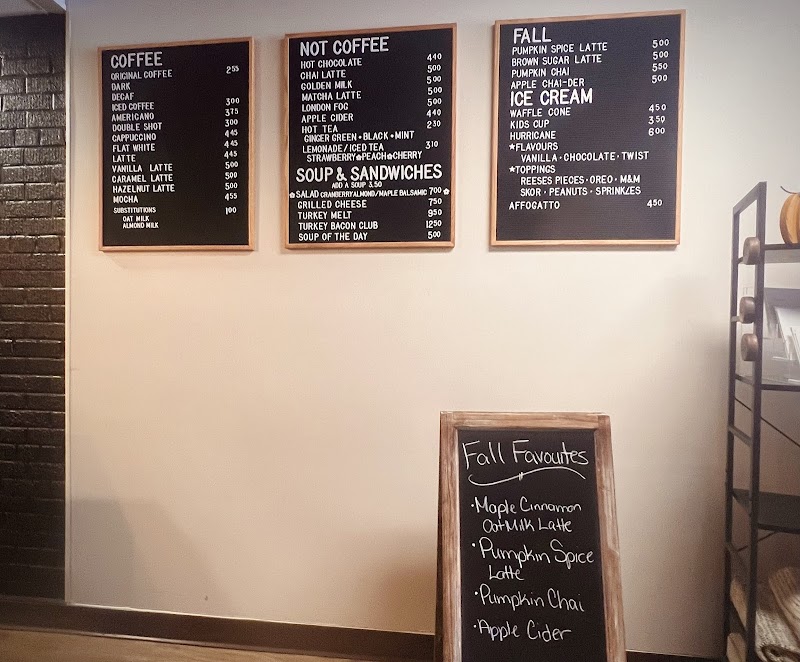 COFFEE
ORIGINAL COFFEE 255
DARK
DECAF
ICED COFFEE 300
AMERICANO 375
DOUBLE SHOT 300
CAPPUCCINO 445
FLAT WHITE 445
LATTE 445
VANILLA LATTE 500
CARAMEL LATTE 500
HAZELNUT LATTE 500
MOCHA 455
SUBSTITUTIONS 100
OAT MILK
ALMOND MILK
NOT COFFEE
HOT CHOCOLATE 440
CHAI LATTE 500
GOLDEN MILK 500
MATCHA LATTE 500
LONDON FOG 500
APPLE CIDER 440
HOT TEA 230
GINGER GREEN • BLACK • MINT
LEMONADE/ICED TEA 310
STRAWBERRY PEACH CHERRY
SOUP & SANDWICHES
ADD A SOUP 3.50
SALAD CRANBERRY ALMOND/MAPLE BALSAMIC 700
GRILLED CHEESE 750
TURKEY MELT 950
TURKEY BACON CLUB 1250
SOUP OF THE DAY 500
FALL
PUMPKIN SPICE LATTE 500
BROWN SUGAR LATTE 500
PUMPKIN CHAI 550
APPLE CHAI-DER 500
ICE CREAM
WAFFLE CONE 450
KIDS CUP 350
HURRICANE 600
★FLAVOURS
VANILLA • CHOCOLATE • TWIST
★TOPPINGS
REESES PIECES • OREO • M&M
SKOR • PEANUTS • SPRINKLES
AFFOGATTO 450
Fall Favourites
• Maple Cinnamon
Oat Milk Latte
• Pumpkin Spice
Latte
• Pumpkin Chai
• Apple Cider